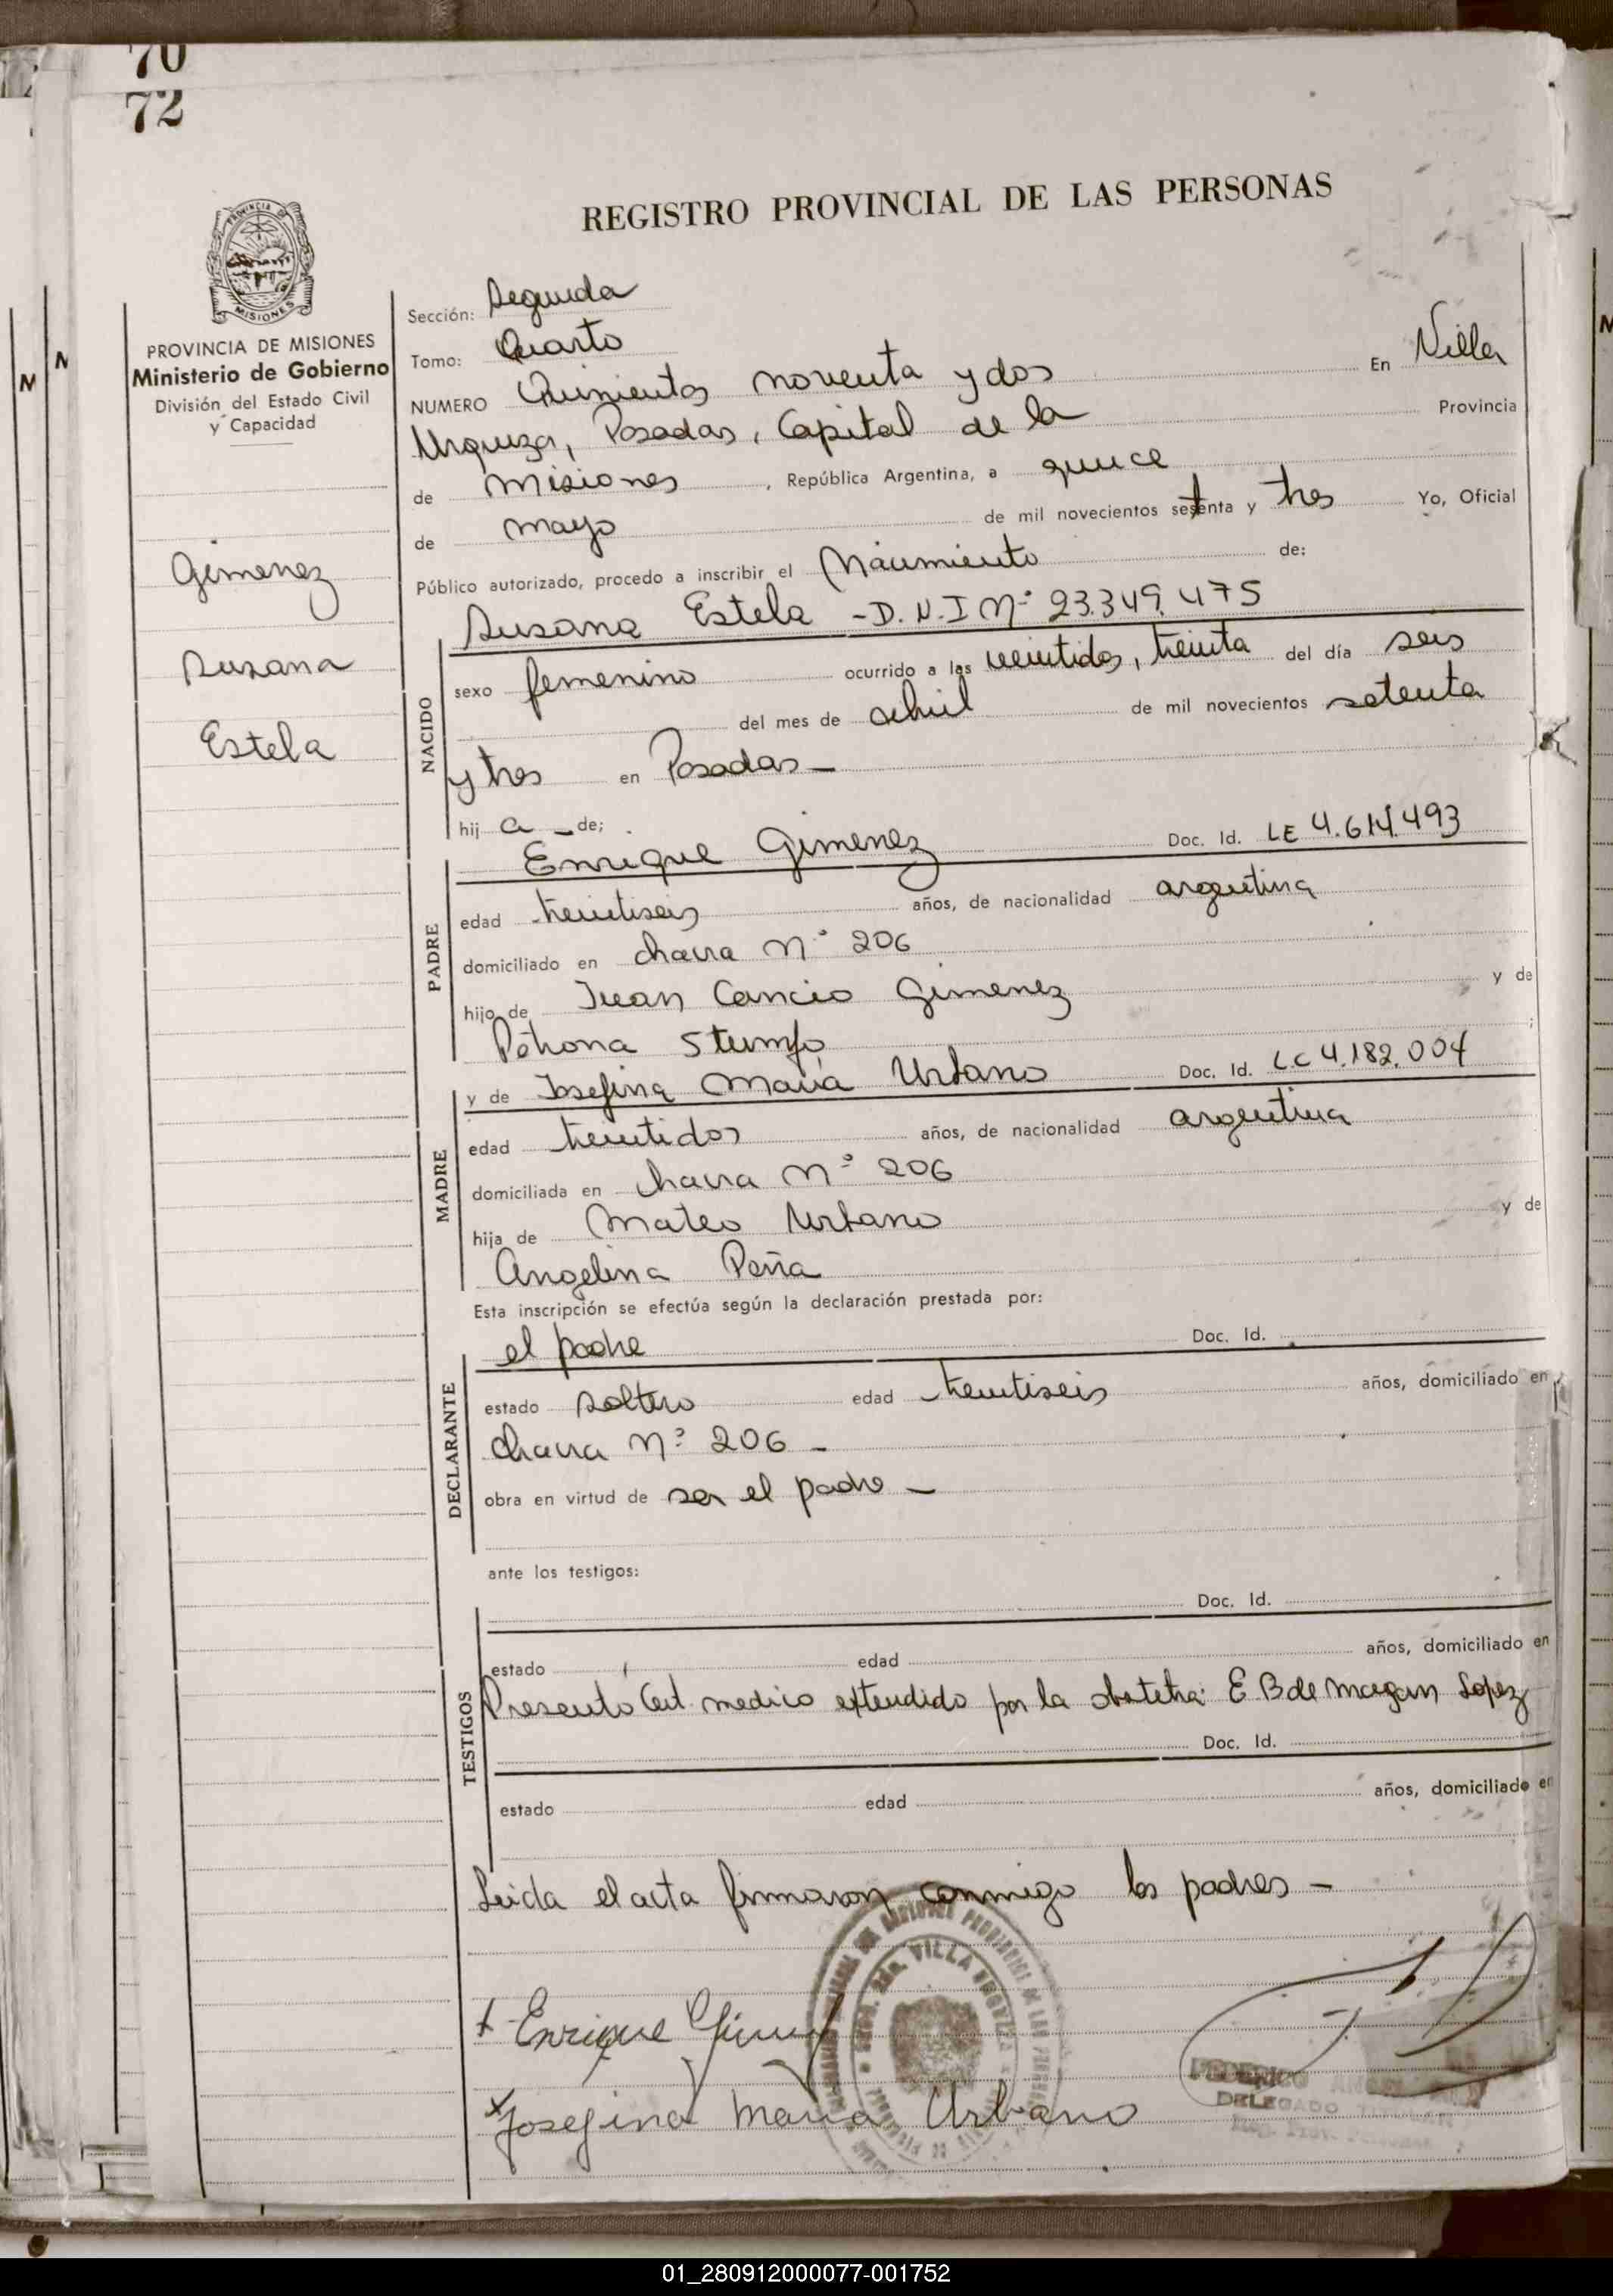 70
72
REGISTRO PROVINCIAL DE LAS PERSONAS
PROVINCIA DE MISIONES
Ministerio de Gobierno
División del Estado Civil
y Capacidad
Gimenez
Susana
Estela
Sección: Segunda
Tomo: Cuarto
NUMERO Quinientos noventa y dos En Villa
Urquiza, Posadas, Capital de la Provincia
de Misiones, República Argentina, a quince
de mayo de mil novecientos setenta y tres Yo, Oficial
Público autorizado, procedo a inscribir el Nacimiento de:
Susana Estela - D.N.I Nº 23.349.475
NACIDO
sexo femenino ocurrido a las veintidos, treinta del día seis
del mes de abril de mil novecientos setenta
y tres en Posadas -
hij a - de;
Enrique Gimenez Doc. Id. LE 4.614.493
PADRE
edad treintiseis años, de nacionalidad argentina
domiciliado en chacra Nº 206
hijo de Juan Cancio Gimenez y de
Petrona Stumpo;
y de Josefina Maria Urbano Doc. Id. L.C 4.182.004
MADRE
edad treintidos años, de nacionalidad argentina
domiciliada en chacra Nº 206
hija de Mateo Urbano y de
Angelina Peña
Esta inscripción se efectúa según la declaración prestada por:
el padre Doc. Id.
DECLARANTE
estado soltero edad treintiseis años, domiciliado en
chacra Nº 206 -
obra en virtud de ser el padre -
ante los testigos:
Doc. Id.
TESTIGOS
estado edad años, domiciliado en
Presentó Cert. medico extendido por la obstetra: E B de Lopez
Doc. Id.
estado edad años, domiciliado en
Leida el acta firmaron conmigo los padres -
Enrique Gimenez
Josefina Maria Urbano
VILLA URQUIZA
FEDERICO
DELEGADO TITULAR
01_280912000077-001752